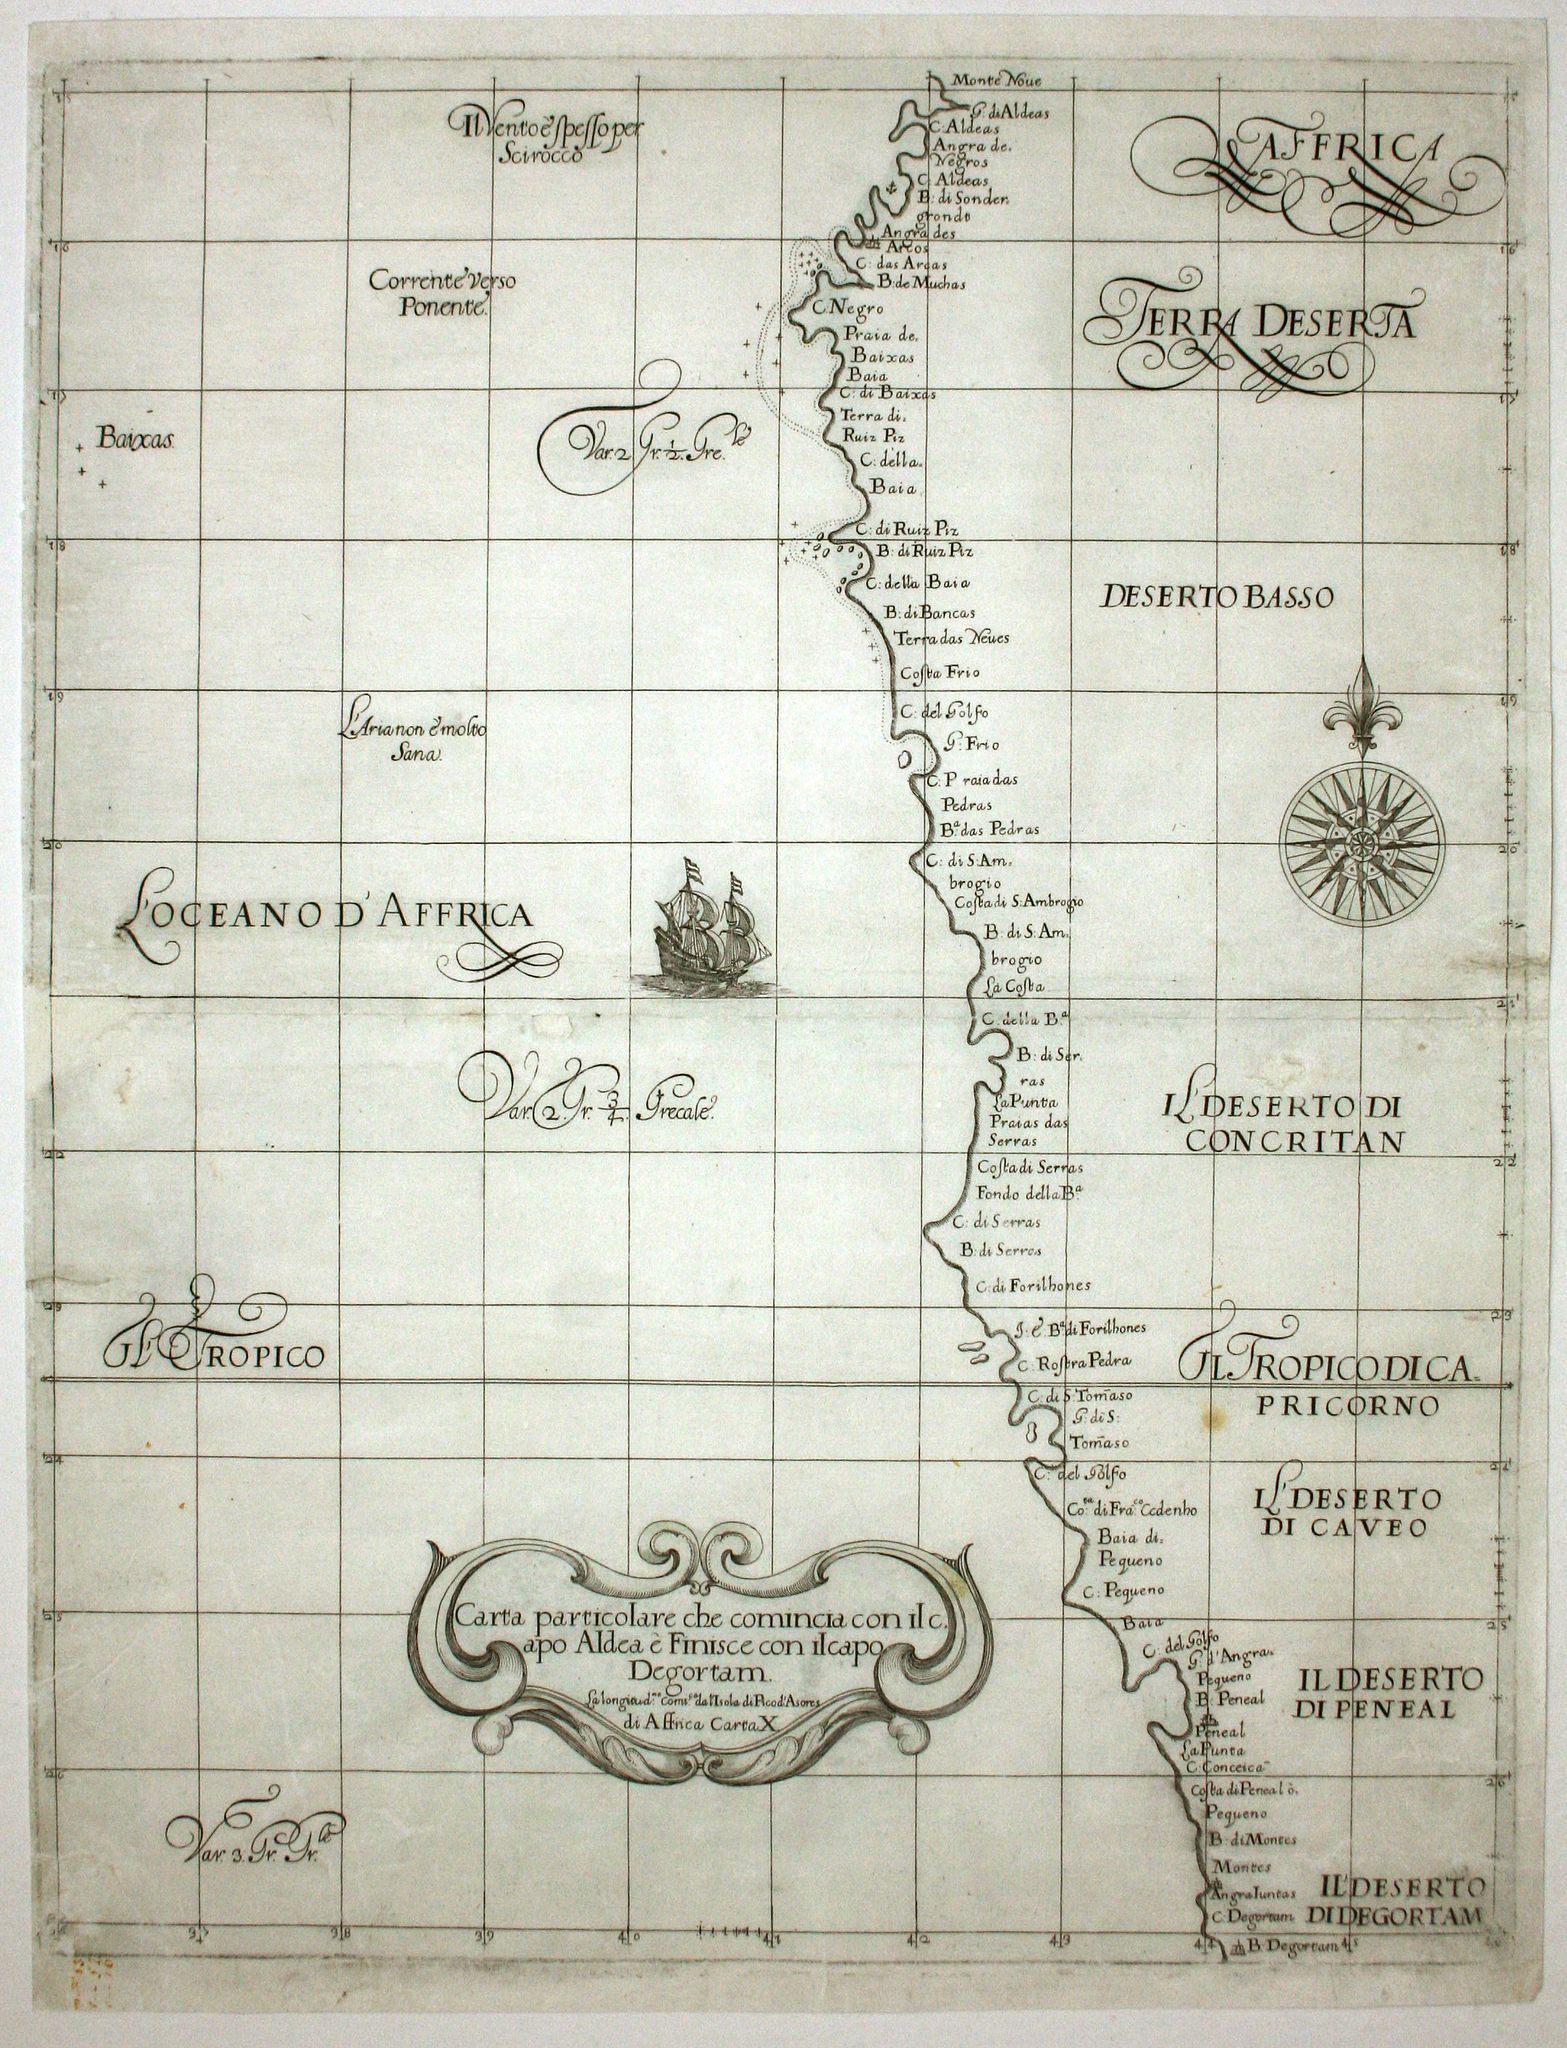 Monte Noue
G: di Aldeas
C: Aldeas
Angra de.
Negros
C: Aldeas
B: di Sonder.
grondo
Angra des
Arcos
C: das Arcas
B: de Muchas
C. Negro
Praia de.
Baixas
Baia
C: di Baixas
Terra di.
Ruiz Piz
C: della.
Baia
C: di Ruiz Piz
B: di Ruiz Piz
C: della Baia
B: di Bancas
Terra das Neues
Costa Frio
C: del Golfo
G: Frio
C: Praia das
Pedras
B.ª das Pedras
C: di S: Am.
brogio
Costa di S: Ambrogio
B: di S: Am.
brogio
La Costa
C: della B.ª
B: di Ser.
ras
La Punta
Praias das
Serras
Costa di Serras
Fondo della B.ª
C: di Serras
B: di Serras
C: di Forilhones
I: è B.ª di Forilhones
C: Rostra Pedra
C: di S: Tom̃aso
G: di S:
Tom̃aso
C: del Golfo
Co.ta di Fra.co Cedenho
Baia di.
Pequeno
C: Pequeno
Baia
C: del Golfo
G: d'Angra.
Pequeno
B: Peneal
Peneal
La Punta
C: Conceica~
Costa di Peneal ò.
Pequeno
B: di Montes
Montes
Angra Iuntas
C: Degortam
B: Degortam
Il Vento è spesso per
Scirocco
Corrente Verso
Ponente.
Baixas.
Var. 2 Gr. ½. Gre.le
L'Aria non è molto
Sana.
L'OCEANO D'AFFRICA
Var. 2. Gr. ¾ Grecale.
IL TROPICO
Var. 3. Gr. Gr.le
L'AFFRICA
TERRA DESERTA
DESERTO BASSO
IL DESERTO DI
CONCRITAN
IL TROPICO DI CA.
PRICORNO
IL DESERTO
DI CAVEO
IL DESERTO
DI PENEAL
IL DESERTO
DI DEGORTAM
Carta particolare che comincia con il c.
apo Aldea è Finisce con il capo
Degortam.
La longitud.ne Coms.ca da l'Isola di Pico d'Asores
di Affrica Carta X
15 16 17 18 19 20 21 22 23 24 25 26
15 16 17 18 19 20 21 22 23 24 25 26
37 38 39 40 41 42 43 44 45